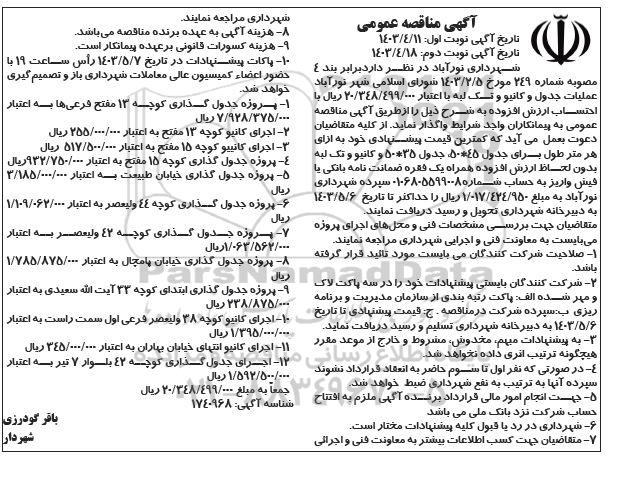 آگهی مناقصه عمومی
تاریخ آگهی نوبت اول: ۱۴۰۳/۴/۱۱
تاریخ آگهی نوبت دوم: ۱۴۰۳/۴/۱۸
شهرداری نورآباد در نظر دارد برابر بند ۴
مصوبه شماره ۲۴۹ مورخ ۱۴۰۳/۲/۵ شورای اسلامی شهر نورآباد
عملیات جدول و کانیو و تک لبه با اعتبار ۲۰/۳۴۸/۴۹۹/۰۰۰ ریال با
احتساب ارزش افزوده به شرح ذیل را ازطریق آگهی مناقصه
عمومی به پیمانکاران واجد شرایط واگذار نماید. از کلیه متقاضیان
دعوت بعمل می آید که کمترین قیمت پیشنهادی خود به ازای
هر متر طول برای جدول ۴۵*۵۰، جدول ۳۵*۵۰ و کانیو و تک لبه
بدون لحاظ ارزش افزوده همراه یک فقره ضمانت نامه بانکی یا
فیش واریز به حساب شماره ۰۱۰۶۸۰۵۵۹۹۰۰۸ سپرده شهرداری
نورآباد به مبلغ ۱/۰۱۷/۴۲۴/۹۵۰ ریال را حداکثر تا تاریخ ۱۴۰۳/۵/۶
به دبیرخانه شهرداری تحویل و رسید دریافت نمایند.
متقاضیان جهت بررسی مشخصات فنی و محل‌های اجرای پروژه
می‌بایست به معاونت فنی و اجرایی شهرداری مراجعه نمایند.
۱- صلاحیت شرکت کنندگان می بایست مورد تائید قرار گرفته
باشد.
۲- شرکت کنندگان بایستی پیشنهادات خود را در سه پاکت لاک
و مهر شده الف: پاکت رتبه بندی از سازمان مدیریت و برنامه
ریزی ب:سپرده شرکت درمناقصه . ج: قیمت پیشنهادی تا تاریخ
۱۴۰۳/۵/۶ به دبیرخانه شهرداری تسلیم و رسید دریافت نماید.
۳- به پیشنهادات مبهم، مخدوش، مشروط و خارج از موعد مقرر
هیچگونه ترتیب اثری داده نخواهد شد.
۴- در صورتی که نفر اول تا سوم حاضر به انعقاد قرارداد نشوند
سپرده آنها به ترتیب به نفع شهرداری ضبط خواهد شد.
۵- جهت انجام امور مالی قرارداد برنده آگهی ملزم به افتتاح
حساب شرکت نزد بانک ملی می باشد
۶- شهرداری در رد یا قبول کلیه پیشنهادات مختار است.
۷- متقاضیان جهت کسب اطلاعات بیشتر به معاونت فنی و اجرائی
شهرداری مراجعه نمایند.
۸- هزینه آگهی به عهده برنده مناقصه می‌باشد.
۹- هزینه کسورات قانونی برعهده پیمانکار است.
۱۰- پاکات پیشنهادات در تاریخ ۱۴۰۳/۵/۷ رأس ساعت ۱۹ با
حضور اعضاء کمیسیون عالی معاملات شهرداری باز و تصمیم گیری
خواهد شد.
۱- پروژه جدول گذاری کوچه ۱۳ مفتح فرعی‌ها به اعتبار
۷/۹۲۸/۳۷۵/۰۰۰ ریال
۲- اجرای کانیو کوچه ۱۳ مفتح به اعتبار ۲۵۵/۰۰۰/۰۰۰ ریال
۳- اجرای کانیو کوچه ۱۵ مفتح به اعتبار ۵۱۷/۵۰۰/۰۰۰ ریال
۴- پروژه جدول گذاری کوچه ۱۵ مفتح به اعتبار ۹۳۲/۷۵۰/۰۰۰ریال
۵- پروژه جدول گذاری خیابان طبیعت به اعتبار ۳/۱۸۵/۰۰۰/۰۰۰
ریال
۶- پروژه جدول گذاری کوچه ۴۴ ولیعصر به اعتبار ۱/۱۰۹/۰۶۲/۰۰۰
ریال
۷- پروژه جدول گذاری کوچه ۴۲ ولیعصر به اعتبار
۱/۰۶۳/۵۶۲/۰۰۰ریال
۸- پروژه جدول گذاری خیابان پامچال به اعتبار ۱/۷۸۵/۸۷۵/۰۰۰
ریال
۹- پروژه جدول گذاری ابتدای کوچه ۳۳ آیت الله سعیدی به اعتبار
۲۳۸/۸۷۵/۰۰۰ ریال
۱۰- اجرای کانیو کوچه ۳۸ ولیعصر فرعی اول سمت راست به اعتبار
۱/۳۹۵/۰۰۰/۰۰۰ ریال
۱۱- اجرای کانیو انتهای خیابان بهاران به اعتبار ۳۴۵/۰۰۰/۰۰۰ ریال
۱۲- اجرای جدول گذاری کوچه ۴۲ بلوار ۷ تیر به اعتبار
۱/۵۹۲/۵۰۰/۰۰۰ ریال
جمعاً به مبلغ ۲۰/۳۴۸/۴۹۹/۰۰۰ ریال
شناسه آگهی: ۱۷۴۰۹۶۸
باقر گودرزی
شهردار
ParsNamadData